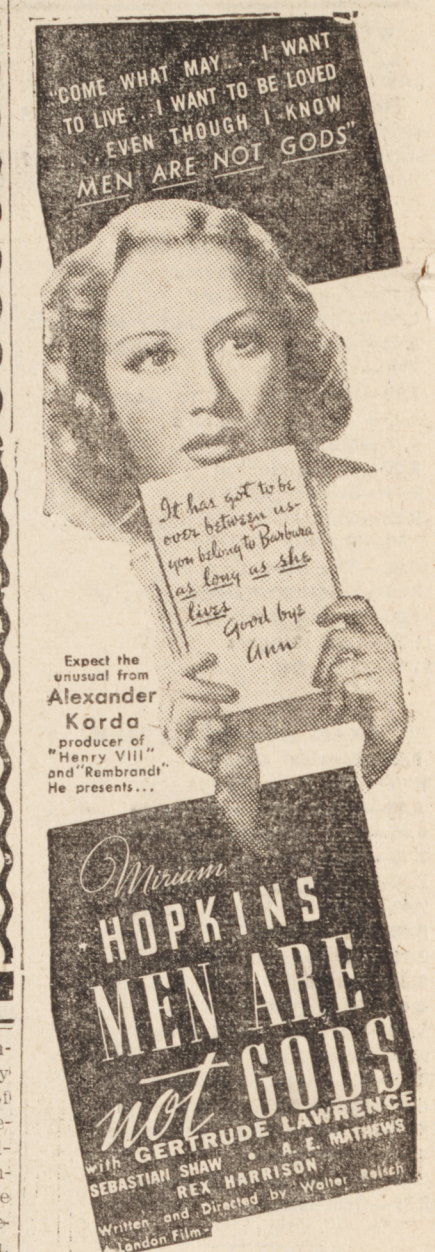 "COME WHAT MAY...I WANT
TO LIVE...I WANT TO BE LOVED
....EVEN THOUGH I KNOW
MEN ARE NOT GODS"
It has got to be
over between us-
you belong to Barbara
as long as she
lives
Good bye
Ann
Expect the
unusual from
Alexander
Korda
producer of
"Henry VIII"
and "Rembrandt"
He presents...
Miriam
HOPKINS
MEN ARE
not GODS
with GERTRUDE LAWRENCE
SEBASTIAN SHAW • A. E. MATHEWS
REX HARRISON
Written and Directed by Walter Reisch
A London Film